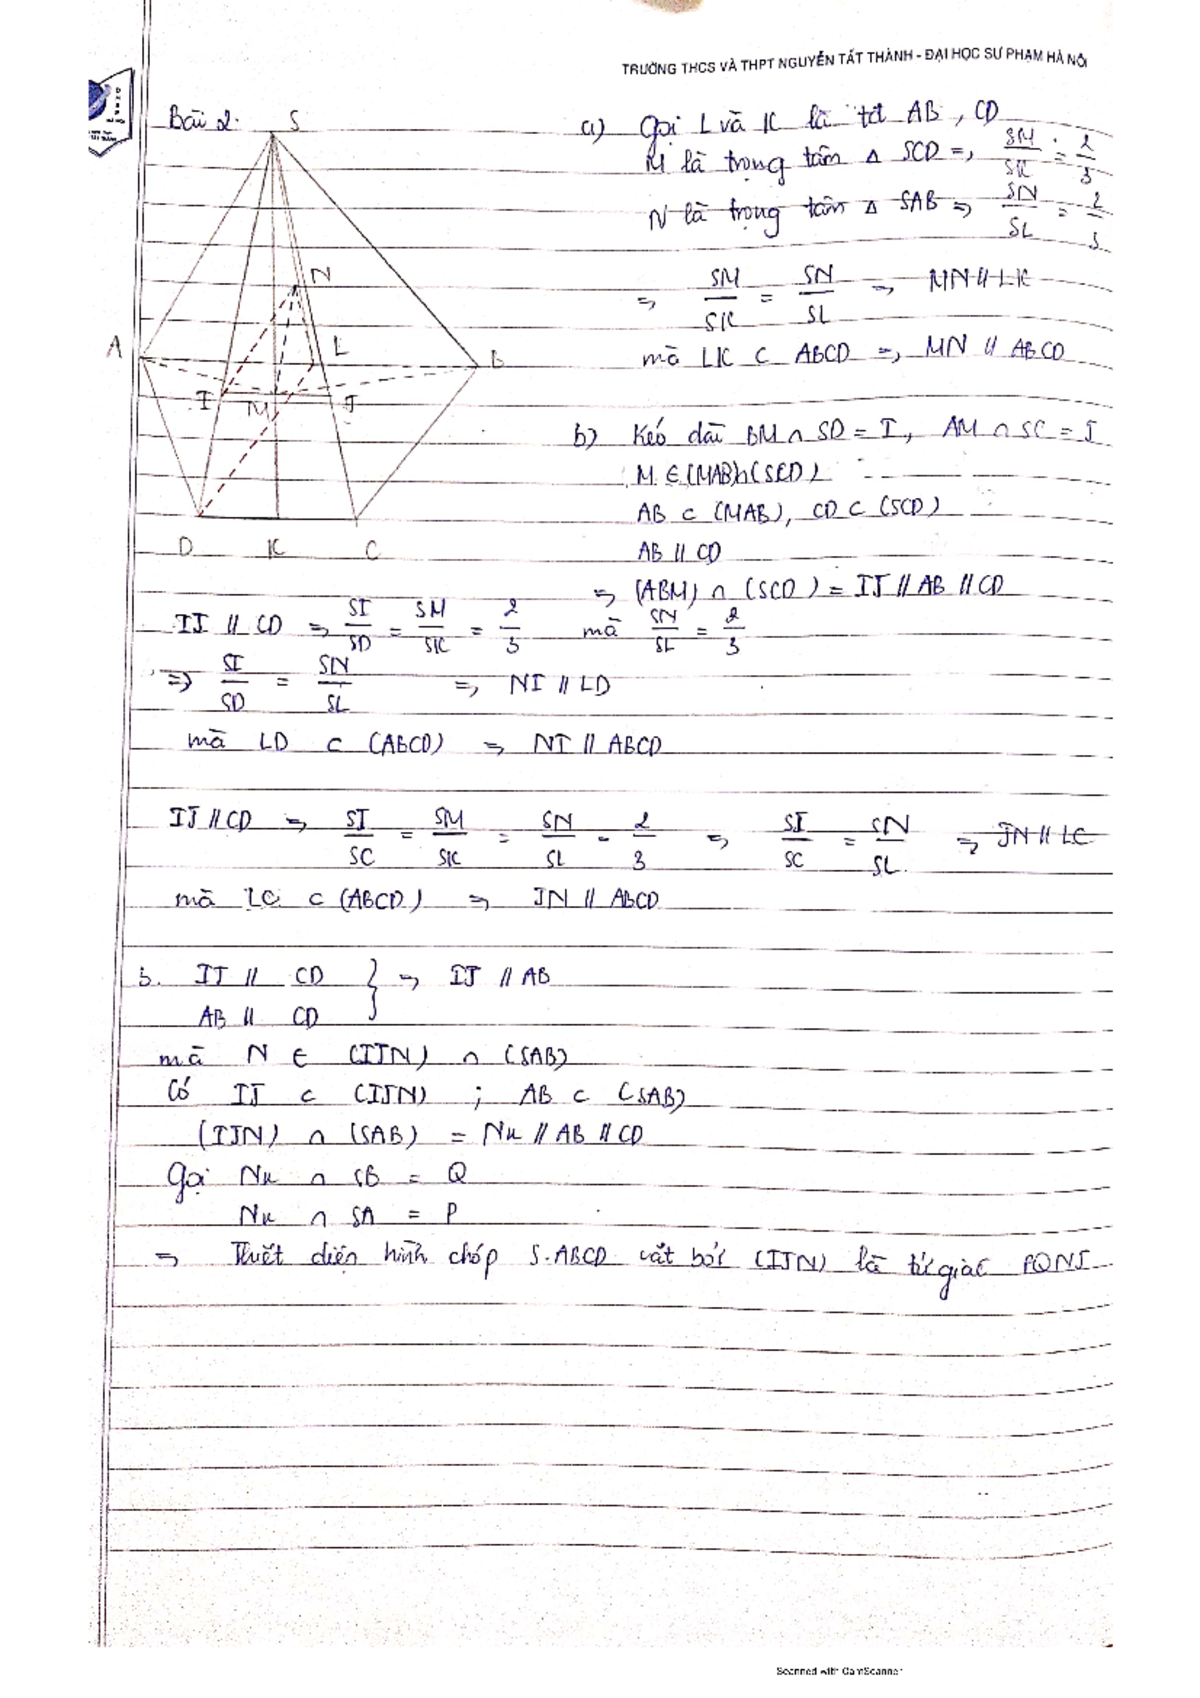 TRƯỜNG THCS VÀ THPT NGUYỄN TẤT THÀNH - ĐẠI HỌC SƯ PHẠM HÀ NỘI
Bài 2:
S
N
A
L
B
I
M
J
D
K
C
a) Gọi L và K là tđ AB, CD
M là trọng tâm Δ SCD => SM/SK = 2/3
N là trọng tâm Δ SAB => SN/SL = 2/3
=> SM/SK = SN/SL => MN // LK
mà LK ⊂ ABCD => MN // ABCD
b) Kéo dài BM ∩ SD = I, AM ∩ SC = J
M ∈ (MAB) ∩ (SCD)
AB ⊂ (MAB), CD ⊂ (SCD)
AB // CD
=> (ABM) ∩ (SCD) = IJ // AB // CD
IJ // CD => SI/SD = SM/SK = 2/3 mà SN/SL = 2/3
=> SI/SD = SN/SL => NI // LD
mà LD ⊂ (ABCD) => NI // ABCD
IJ // CD => SJ/SC = SM/SK = SN/SL = 2/3 => SJ/SC = SN/SL => JN // LC
mà LC ⊂ (ABCD) => JN // ABCD
3. IJ // CD } => IJ // AB
AB // CD
mà N ∈ (IJN) ∩ (SAB)
Có IJ ⊂ (IJN) ; AB ⊂ (SAB)
(IJN) ∩ (SAB) = Nx // AB // CD
Gọi Nx ∩ SB = Q
Nx ∩ SA = P
=> Thiết diện hình chóp S.ABCD cắt bởi (IJN) là tứ giác
Scanned with CamScanner